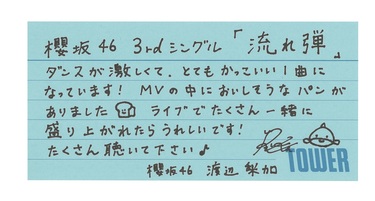 櫻坂46 3rdシングル「流れ弾」
ダンスが激しくて、とてもかっこいい1曲に
なっています! MVの中においしそうなパンが
ありました ライブでたくさん一緒に
盛り上がれたらうれしいです!
たくさん聴いて下さい♪
櫻坂46 渡辺梨加
TOWER